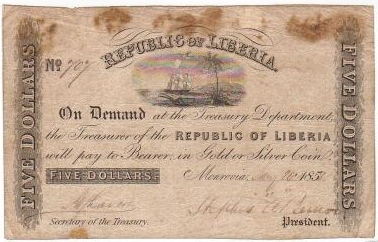 REPUBLIC OF LIBERIA.
No 707
FIVE DOLLARS
FIVE DOLLARS
On Demand at the Treasury Department,
the Treasurer of the REPUBLIC OF LIBERIA
will pay to Bearer, in Gold or Silver Coin
FIVE DOLLARS.
Monrovia, 185
Secretary of the Treasury.
President.